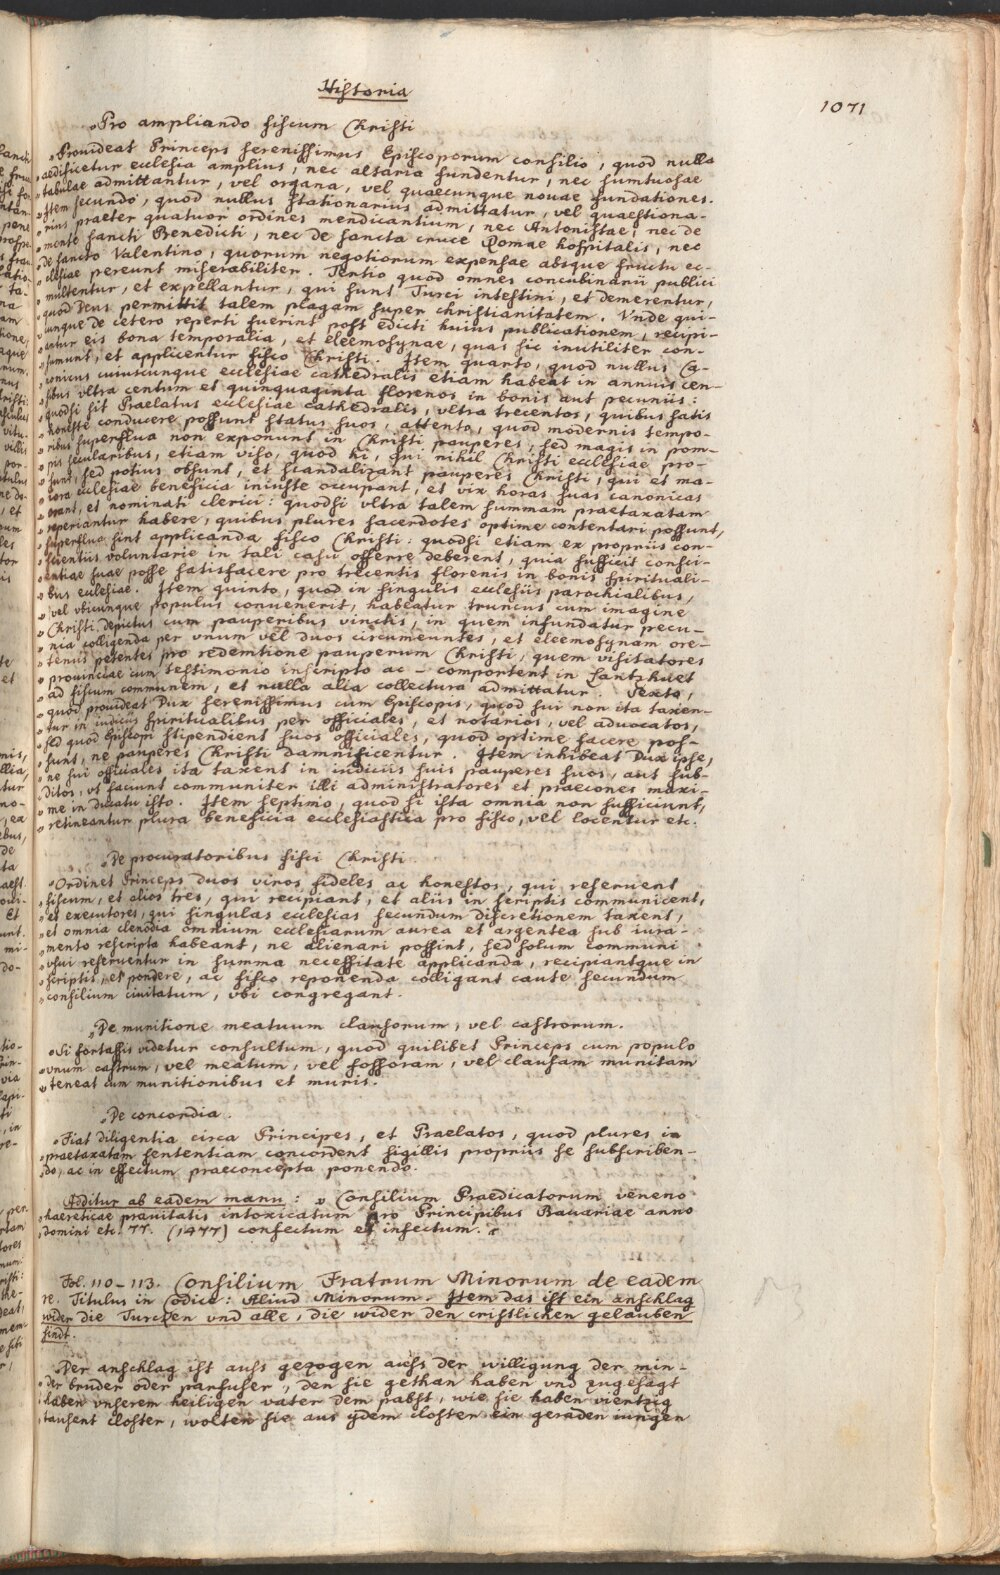 Historia
1071
„Pro ampliando fiscum Christi
„Provideat Princeps serenissimus Episcoporum consilio, quod nulla
„aedificetur ecclesia amplius, nec altaria fundentur, nec sumtuosae
„tabulae admittantur, vel organa, vel quaecunque novae fundationes.
„Item secundo, quod nullus stationarius admittatur, vel quaestiona-
„rius praeter quatuor ordines mendicantium, nec Antonistae, nec de
„monte sancti Benedicti, nec de sancta cruce Romae hospitalis, nec
„de sancto Valentino, quorum negotiorum expensae absque fructu ec-
„clesiae pereunt miserabiliter. Tertio quod omnes concubinarii publici
„multentur, et expellantur, qui sunt Turci intestini, et demerentur,
„quod Deus permittit talem plagam super christianitatem. Vnde qui-
„cunque de cetero reperti fuerint post edicti huius publicationem, recipi-
„antur eis bona temporalia, et eleemosynae, quas sic inutiliter con-
„sumunt, et applicentur fisco Christi. Item quarto, quod nullus Ca-
„nonicus cuiuscunque ecclesiae cathedralis etiam habeat in annuis cen-
„sibus vltra centum et quinquaginta florenos in bonis aut pecuniis:
„quodsi sit Praelatus ecclesiae cathedralis, vltra trecentos, quibus satis
„honeste conducere possunt status suos, attento, quod modernis tempo-
„ribus superflua non exponunt in Christi pauperes, sed magis in pom-
„pis secularibus, etiam viso, quod hi, qui nihil Christi ecclesiae pro-
„sunt, sed potius obsunt, et scandalizant pauperes Christi, qui et ma-
„iora ecclesiae beneficia iniuste occupant, et vix horas suas canonicas
„orant, et nominati clerici: quodsi vltra talem summam praetaxatam
„reperiantur habere, quibus plures sacerdotes optime contentari possunt,
„superflua sint applicanda fisco Christi: quodsi etiam ex propriis con-
„scientiis voluntarie in tali casu offerre deberent, quia sufficit consci-
„entiae suae posse satisfacere pro trecentis florenis in bonis spirituali-
„bus ecclesiae. Item quinto, quod in singulis ecclesiis parochialibus,
„vel vbicunque populus convenerit, habeatur truncus cum imagine
„Christi depictus cum pauperibus vinctis, in quem infundatur pecu-
„nia colligenda per vnum vel duos circumeuntes, et eleemosynam ore-
„tenus petentes pro redemtione pauperum Christi, quem visitatores
„provinciae cum testimonio inscripto ac - comportent in Lantzhuet
„ad fiscum communem, et nulla alia collectura admittatur. Sexto,
„quod provideat Dux serenissimus cum Episcopis, quod sui non ita taxen-
„tur in iudiciis spiritualibus per officiales, et notarios, vel advocatos,
„sed quod Episcopi stipendient suos officiales, quod optime facere pos-
„sunt, ne pauperes Christi damnificentur. Item inhibeat Dux ipse,
„ne sui officiales ita taxent in iudiciis suis pauperes suos, aut sub-
„ditos, vt faciunt communiter illi administratores et praecones maxi-
„me in ducatu isto. Item septimo, quod si ista omnia non sufficiunt,
„retineantur plura beneficia ecclesiastica pro fisco, vel locentur etc.
„De procuratoribus fisci Christi
„Ordinet Princeps duos viros fideles ac honestos, qui reservent
„fiscum, et alios tres, qui recipiant, et aliis in scriptis communicent,
„et executores, qui singulas ecclesias secundum discretionem taxent,
„et omnia clenodia omnium ecclesiarum aurea et argentea sub iura-
„mento rescripta habeant, ne alienari possint, sed solum communi
„vsui reserventur in summa necessitate applicanda, recipiantque in
„scriptis, et pondere, ac fisco reponenda colligant caute secundum
„consilium civitatum, vbi congregant.
„De munitione meatuum clausorum, vel castrorum.
„Si fortassis videtur consultum, quod quilibet Princeps cum populo
„vnum castrum, vel meatum, vel fossoram, vel clausam munitam
„teneat cum munitionibus et muris.
„De concordia.
„Fiat diligentia circa Principes, et Praelatos, quod plures in
„praetaxatam sententiam concordent sigillis propriis se subscriben-
„do, ac in effectum praeconcepta ponendo.
Additur ab eadem manu: „Consilium Praedicatorum veneno
„haereticae pravitatis intoxicatum pro Principibus Bavariae anno
„domini etc. 77. (1477) confectum et infectum.“
Fol. 110-113. Consilium Fratrum Minorum de eadem
re. Titulus in Codice: Aliud Minorum. Item das ist ein anschlag
wider die Turcken vnd alle, die wider den cristlichen gelauben
sindt.
„Der anschlag ist auss gezogen auss der willigung der min-
„der bruder oder parfuser, den sie gethan haben vnd zugesagt
„haben vnserem heiligen vater dem pabst, wie sie haben viertzig
„tausent closter, wolten sie aus ydem closter ein geraden iungen